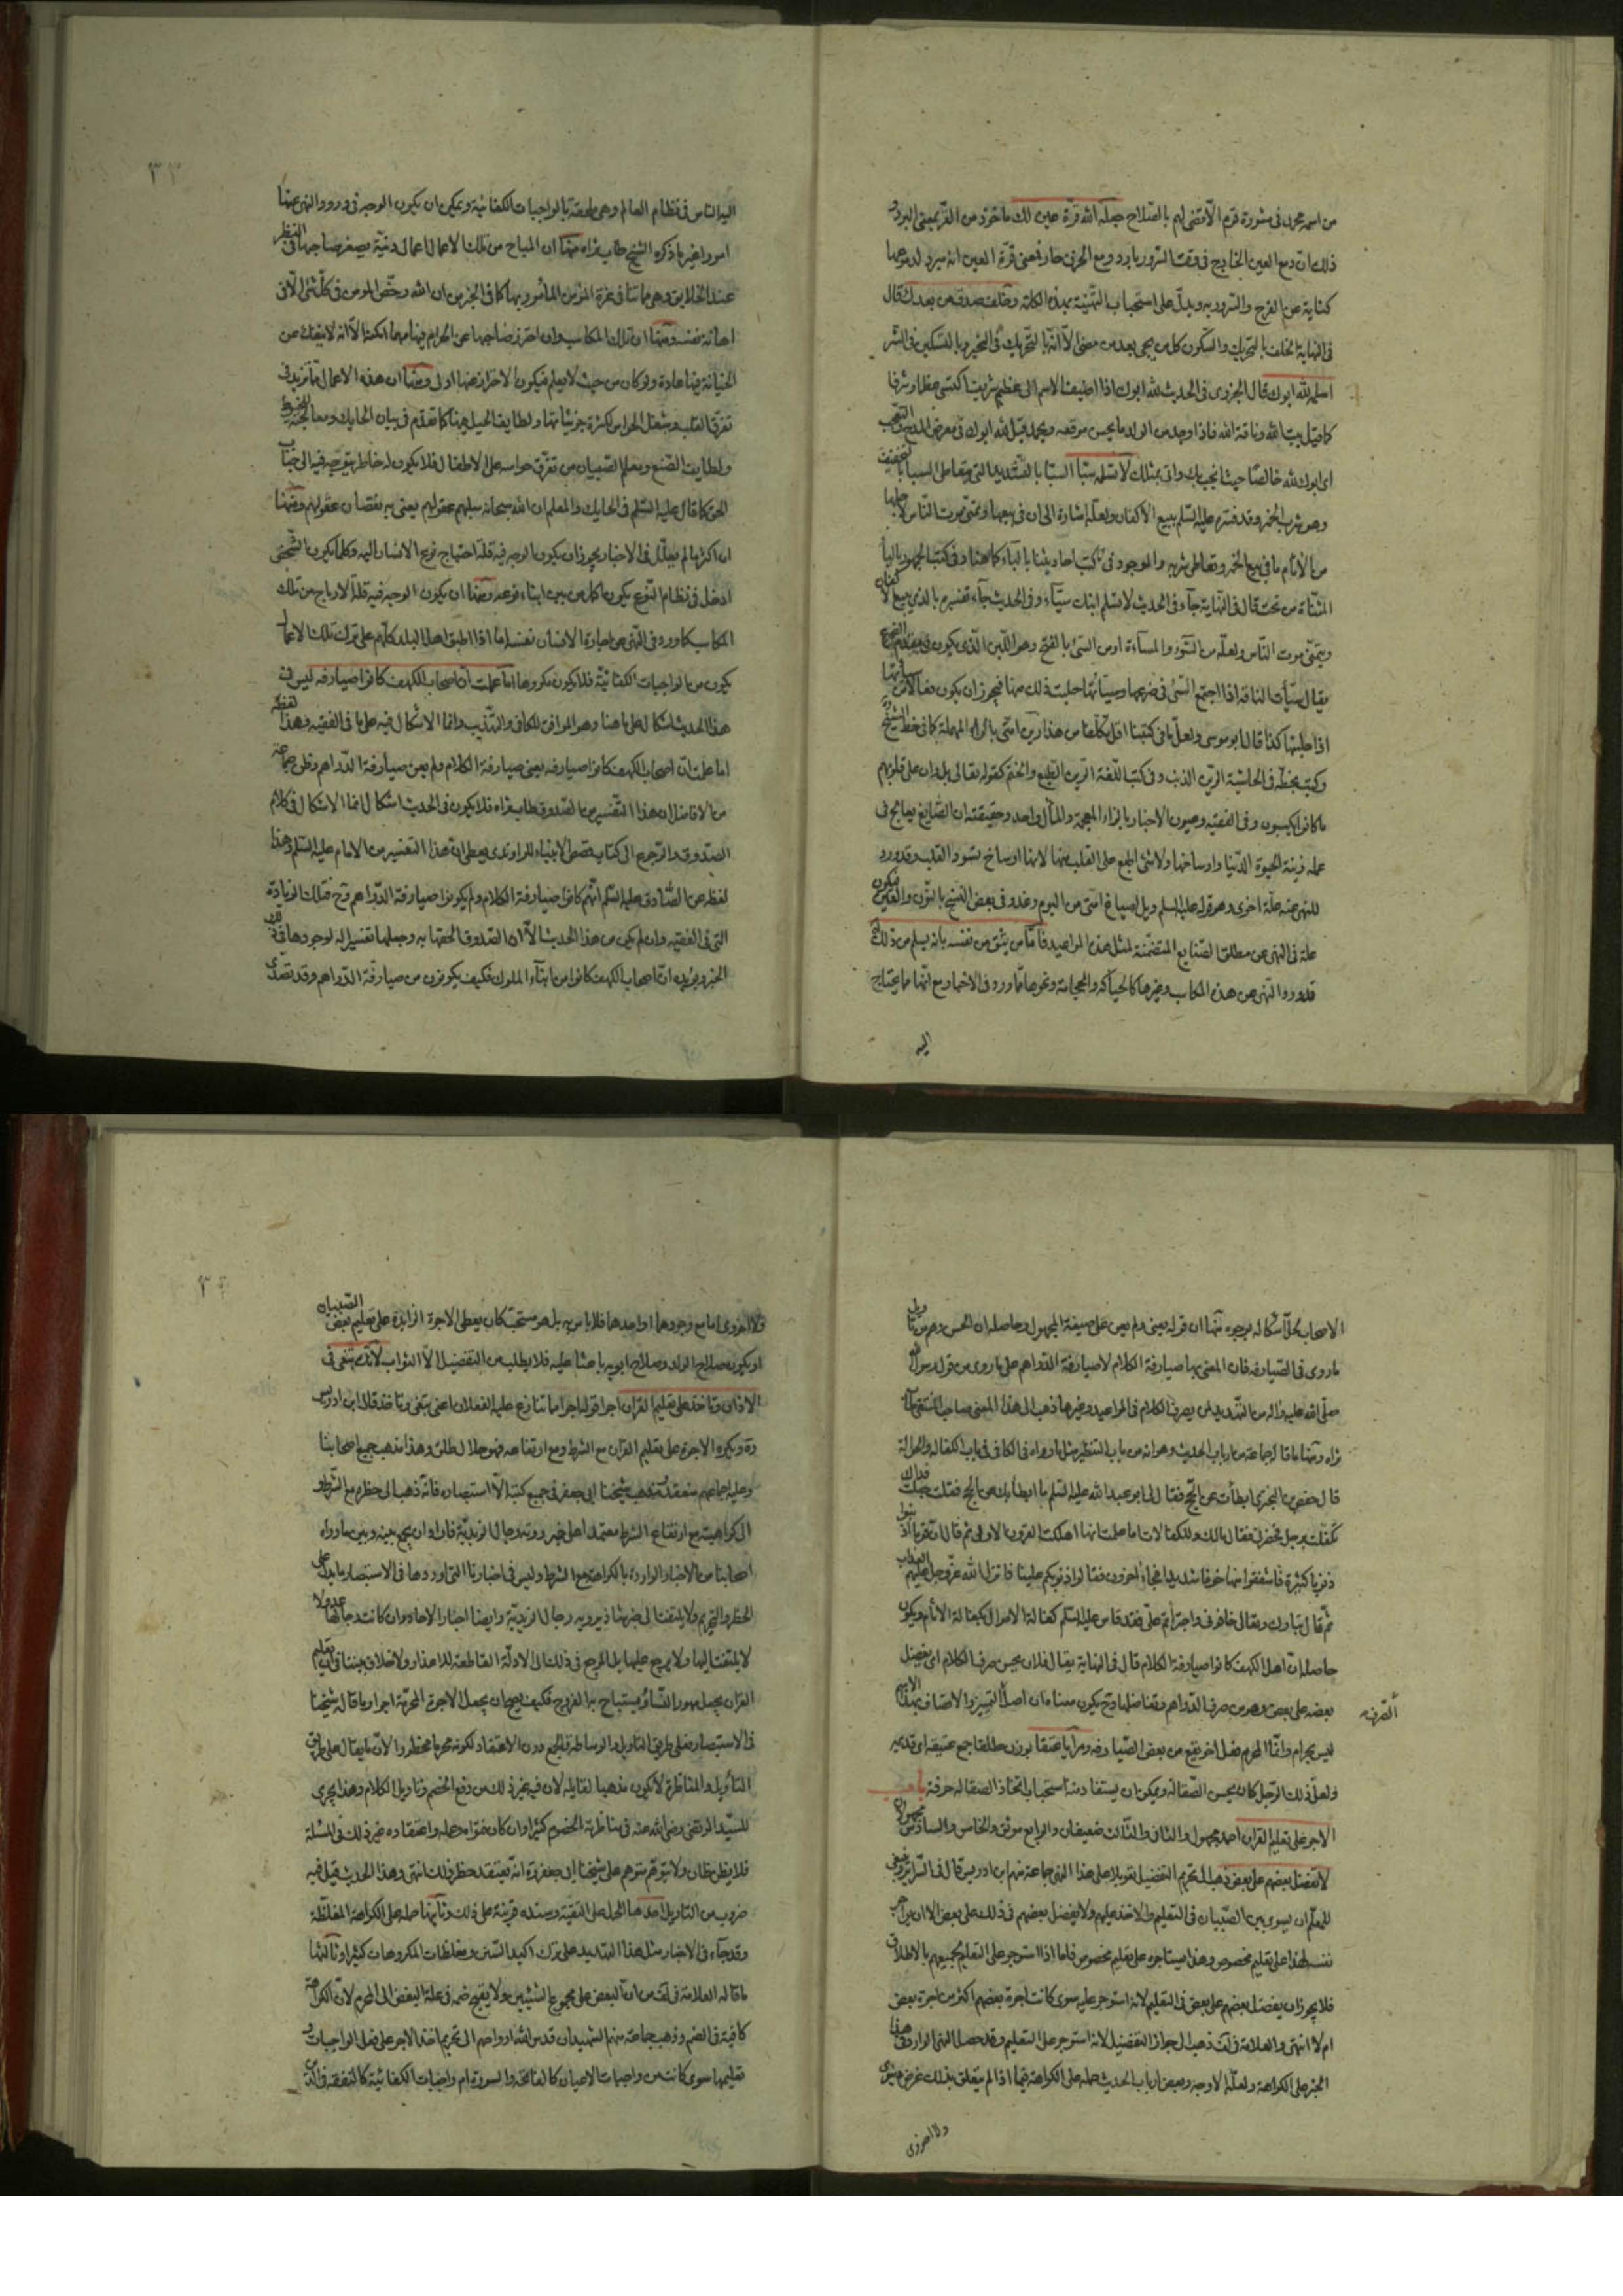 من اسمه محمد في مشورة قوم الّا قضى لهم بالصلاح جعله الله قرّة عين لك ماخوذ من القرّ بمعنى البرد و
ذلك انّ دمع العين الخارج في وقت السّرور بارد و دمع الحزن حار فمعنى قرّة العين انه مبرد لدموعها
كناية عن الفرح والسّرور به ويدلّ على استحباب التهنية بهذه الكلمة وخلف صدق من بعدك قال
في النهاية الخلف بالتحريك والسّكون كل من يجي بعد من مضى الّا انّه بالتّحريك في الخير وبالتسكين في الشر
اسلمه لله ابوك قال الجزري في الحديث لله ابوك اذا اضيف الاسم الى عظيم شريف اكتسى عظما وشرفا
كما قيل بيت الله وناقة الله فاذا وجد من الولد ما يحسن موقعه ويحمد قيل لله ابوك في معرض المدح والتعجب
اى ابوك لله خالصًا حيث انجب بك واتى بمثلك لا تسلمه سبّا السبّا بالتشديد التي يتعاطى السبا بالتخفيف
وهو شرب الخمر وقد فسّره عليه السّلم ببيع الاكفان ولعلّه اشارة الى ان في بيعها وتمنّى موت النّاس لاجلها
من الآثام ما في بيع الخمر وتعاطى شربه والموجود في كتب احاديثنا بالباء كما هنا وفي كتب الجمهور بالياء
المثنّاة من تحت قال في النهاية جاء في الحديث لا تسلم ابنك سيّاء وفي الحديث جاء تفسيره بالذي يبيع الاكفان
ويتمنّى موت النّاس ولعلّه من السّوء والمساءة او من السّيء بالفتح وهو اللّبن الّذي يكون في مقدم الضرع
يقال سيّأت الناقة اذا اجتمع السّيء في ضرعها وسيّأتها حلبت ذلك منها فيحتمل ان يكون فعّالا من سيّأتها
اذا حلبتها كذا قال ابو موسى ولعلّ ما في كتبنا اقل تكلّفا من هذا رين امّتى بالراء المهملة كما في خط الشيخ
وكتب بخطّه في الحاشية الرّين الذنب وفي كتب اللّغة الرّين الطبع والختم كقوله تعالى بل ران على قلوبهم
ما كانوا يكسبون وفي الفقيه وعيون الاخبار بالزاء المعجمة والمآل واحد وحقيقته ان الصّايغ يعالج في
عمله زينة الحيوة الدّنيا واوساخها ولا شئ اطبع على القلب منها لانها اوساخ تسود القلب وقد ورد
للنهى عنه علّة اخرى وهو قوله عليه السلم ويل لصياغ امتى من اليوم وغد وفي بعض النسخ بالنّون والغين فيكون
علة في النهى عن مطلق الصنايع المتضمّنة لمثل هذه المواعيد فامّا من يثق من نفسه بانه يسلم من ذلك
قد ورد النّهى عن هذه المكاسب وغيرها كالحياكه والحجامة ونحوها ممّا ورد في الاخبار مع انّها مما يحتاج
اليه
اليه الناس في نظام العالم وهي ملحقة بالواجبات الكفائية ويمكن ان يكون الوجه في ورود النهى عنها
امورا غير ما ذكره الشيخ طاب ثراه منها ان المباح من تلك الاعمال اعمال دنيّة يصغر صاحبها في النظر
عند الخلايق وهى مما تنافي عزة المؤمن المأمور بها كما في الخبر من ان الله رخّص المؤمن في كلّ شئ الّا في
اهانة نفسه ومنها ان تلك المكاسب وان احترز صاحبها عن الحرام فيها مهما امكن الّا انه لا ينفك عن
الخيانة فيها عادة ولو كان من حيث لا يعلم فيكون الاحتراز عنها اولى ومنها ان هذه الاعمال ممّا تزيد في
تفرّق القلب وشغل الحواس لكثرة جزئيّاتها ولطايف الحيل فيها كما تقدّم في بيان الحايك ومعالجته للخيوط
ولطايف الصّنع ومعلم الصّبيان من تفرّق حواسه على الاطفال فلا يكون له خاطر يتوجه فيه الى جناب
الحق كما قال عليه السّلم في الحايك والمعلم ان الله سبحانه سلبهم عقولهم يعنى به نقصان عقولهم ومنها
ان اكثرها لم يعلّل في الاخبار يجوز ان يكون الوجه فيه قلّة احتياج نوع الانسان اليه وكلما يكون الشّخص
ادخل في نظام النّوع يكون اكمل من بين ابناء نوعه ومنها ان يكون الوجه فيه قلّة الارباح من تلك
المكاسب كما ورد في النّهى عن اجارة الانسان نفسه امّا اذا اطبق اهل البلد كلّهم على ترك تلك الاعمال
يكون من الواجبات الكفائيّة فلا يكون مكروها اما علمت انّ اصحاب الكهف كانوا صيارفه ليس في
هذا الحديث اشكال على ما هنا وهو الموافق للكافي والتّهذيب وانما الاشكال فيه على ما في الفقيه وهذا لفظه
اما علمت انّ اصحاب الكهف كانوا صيارفه يعنى صيارفة الكلام ولم يعن صيارفة الدّراهم وظن جماعة
من الافاضل ان هذا التّفسير من الصّدوق طاب ثراه فلا يكون في الحديث اشكال انما الاشكال في كلام
الصّدوق والرّجوع الى كتاب قصص الانبياء للراوندى يعطى انّ هذا التفسير من الامام عليه السّلم وهذا
لفظه عن الصّادق عليه السّلم انّهم كانوا صيارفة الكلام ولم يكونوا صيارفة الدّراهم وح فتلك الزيادة
التي في الفقيه وان لم يكن من هذا الحديث الّا ان الصّدوق الحقها به وجعلها تفسيرا له لوجودها في ذلك
الخبر ويؤيده انّ اصحاب الكهف كانوا من ابناء الملوك فكيف يكونون من صيارفة الدّراهم وقد تصدّى
الاصحاب لحلّ اشكاله بوجوه منها ان قوله يعنى ولم يعن على صيغة المجهول وحاصله ان الحسن وهم من تاويل
ما روى في الصّيارفه فان المعنى بها صيارفة الكلام لا صيارفة الدّراهم على ما روى من قول رسول الله
صلّى الله عليه واله من التّهديد لمن يصرف الكلام في المواعيد وغيرها ذهب الى هذا المعنى صاحب المنتقى طاب
ثراه ومنها ما قاله جماعة من ارباب الحديث وهو انه من باب التنظير مثل ما رواه في الكافي في باب الكفاله والحوالة
قال حفص بن البخترى ابطأت عن الحجّ فقال لى ابو عبد الله عليه السّلم ما ابطأ بك عن الحج فقلت جعلت فداك
تكفّلت برجل فخفر بى فقال ما لك وللكفالات اما علمت انها اهلكت القرون الاولى ثم قال ان قوما اذنبوا
ذنوبا كثيرة فاشفقوا منها خوفا شديدا فجاء اخرون فقالوا ذنوبكم علينا فانزل الله عزّ وجل عليهم العذاب
ثمّ قال تبارك وتعالى خافونى واجترأتم علىّ فقد قاس عليه السّلم كفالة الاموال بكفالة الآثام ويكون
حاصله انّ اهل الكهف كانوا صيارفة الكلام قال في النهاية يقال فلان يحسن صرف الكلام اى يفضل
بعضه على بعض وهو من صرف الدّراهم وتفاضلها وح يكون معناه ان اصل التمييز والاتصاف بهذا الاسم
الصّرف
ليس بحرام وانّما المحرم فعل اخر يقع من بعض الصّيارفه ومرآيا عتقا بوزن طلقا جمع عتيقه اى قديمه
ولعل ذلك الرّجل كان يحسن الصّقالة ويمكن ان يستفاد منه استحباب اتخاذ الصقاله حرفة باب
الاجر على تعليم القران احد مجهول والثاني والثّالث ضعيفان والرابع موثق والخامس والسادس مجهولان
لا تفضل بعضهم على بعض ذهب الى تحريم التفضيل تعويلا على هذا النهى جماعة منهم ابن ادريس قال في السّرائر وينبغى
للمعلم ان يسوى بين الصّبيان في التعليم والاخذ عليهم ولا يفضل بعضهم في ذلك على بعض الا ان يواجر
نفسه لهذا على تعليم مخصوص وهذا يستاجره على تعليم مخصوص فاما اذا استوجر على التعليم لجميعهم بالاطلاق
فلا يجوز ان يفضل بعضهم على بعض في التعليم لانه استوجر عليه سوى كانت اجرة بعضهم اكثر من اجرة بعض
ام لا انتهى والعلامة في لف ذهب الى جواز التفضيل لانه استوجر على التعليم وقد حصل النهى الوارد في هذا
الخبر على الكراهة ولعلّه الاوجه وبعض ارباب الحديث حمله على الكراهة فيما اذا لم يتعلق بذلك غرض دنيوى
ولا اخروى
ولا اخروى اما مع وجودهما او احدهما فلا باس به بل هو مستحب كان يعطى الاجرة الزايدة على تعليم بعض الصّبيان
او يكون صلاح الولد وصلاح ابويه باعثا عليه فلا يطلب من التفضيل الّا الثواب لانّك تبغى في
الاذان وتاخذ على تعليم القران اجرا قوله اجرا مما تنازع عليه الفعلان اعنى تبغى وتاخذ قال ابن ادريس
ره ويكره الاجرة على تعليم القرآن مع الشرط ومع ارتفاعه فهو حلال طلق وهذا مذهب جميع اصحابنا
وعليه اجماعهم منعقد ومذهب شيخنا ابي جعفر في جميع كتبه الّا استبصاره فانّه ذهب الى حظره مع الشّرط و
الى كراهيته مع ارتفاع الشرط معتمدا على خبر روته رجال الزيديّة فاراد ان يجمع بينه وبين ما رواه
اصحابنا من الاخبار الواردة بالكراهة مع الشرط وليس في اخبارنا التى اوردها في الاستبصار ما يدلّ على
الحظر والتحريم ولا يلتفت الى خبر شاذ يرويه رجال الزيديّة وايضا اخبار الاحاد وان كانت رجالها عدولا
لا يلتفت اليها ولا يعرج عليها بل المرجع في ذلك الى الادلّة القاطعة للاعذار ولا خلاف بيننا في انّ تعليم
القران يجعل مهور النّساء ويستباح به الفروج فكيف يصح ان يجعل الاجرة المحرّمة اجورا وما قاله شيخنا
في الاستبصار فعلى طريق التاويل والوساطه والجمع دون الاعتقاد لكونه محرما محظورا لانّ ما يقال على طريق
التاويل والمناظرة لا يكون مذهبا لقايله لان فيه غير ذلك من دفع الخصم وتاويل الكلام وهذا يجرى
للسيّد المرتضى رضى الله عنه في مناظرته الخصوم كثيرا وان كان فتواه وعمله واعتقاده غير ذلك في المسئلة
فلا يظن ظان ولا يتوهّم متوهم على شيخنا ابى جعفر ره انّه يعتقد حظر ذلك انتهى وهذا الحديث قيل فيه
ضروب من التاويل احدها الحمل على التقيّة وسنده قرينة على ذلك وثانيها حمله على الكراهة المغلّظة
وقد جاء في الاخبار مثل هذا التهديد على ترك اكيد السّنن ومغلظات المكروهات كثيرا وثالثها
ما قاله العلامة في لف من انّ البغض على مجموع الشيئين ولا يقبح ضمه في علة البغض الى المحرم لانّ الكراهة
كافية في الضم وذهب جماعة منهم الشهيدان قدس الله ارواحهم الى تحريم اخذ الاجر على فعل الواجبات و
تعليمها سوى كانت من واجبات الاعيان كالفاتحة والسورة ام واجبات الكفائيّة كالتفقه في الدّين